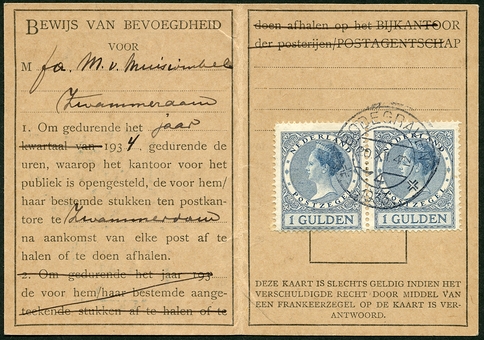 BEWIJS VAN BEVOEGDHEID
VOOR
M fa. M. v. Muiswinkel
Zwammerdam
1. Om gedurende het jaar
kwartaal van 1934, gedurende de
uren, waarop het kantoor voor het
publiek is opengesteld, de voor hem/
haar bestemde stukken ten postkan-
tore te Zwammerdam
na aankomst van elke post af te
halen of te doen afhalen.
2. Om gedurende het jaar 193
de voor hem/haar bestemde aange-
teekende stukken af te halen of te
doen afhalen op het BIJKANTOOR
der posterijen/POSTAGENTSCHAP
NEDERLAND
POSTZEGEL
1 GULDEN
NEDERLAND
POSTZEGEL
1 GULDEN
DEZE KAART IS SLECHTS GELDIG INDIEN HET
VERSCHULDIGDE RECHT DOOR MIDDEL VAN
EEN FRANKEERZEGEL OP DE KAART IS VER-
ANTWOORD.